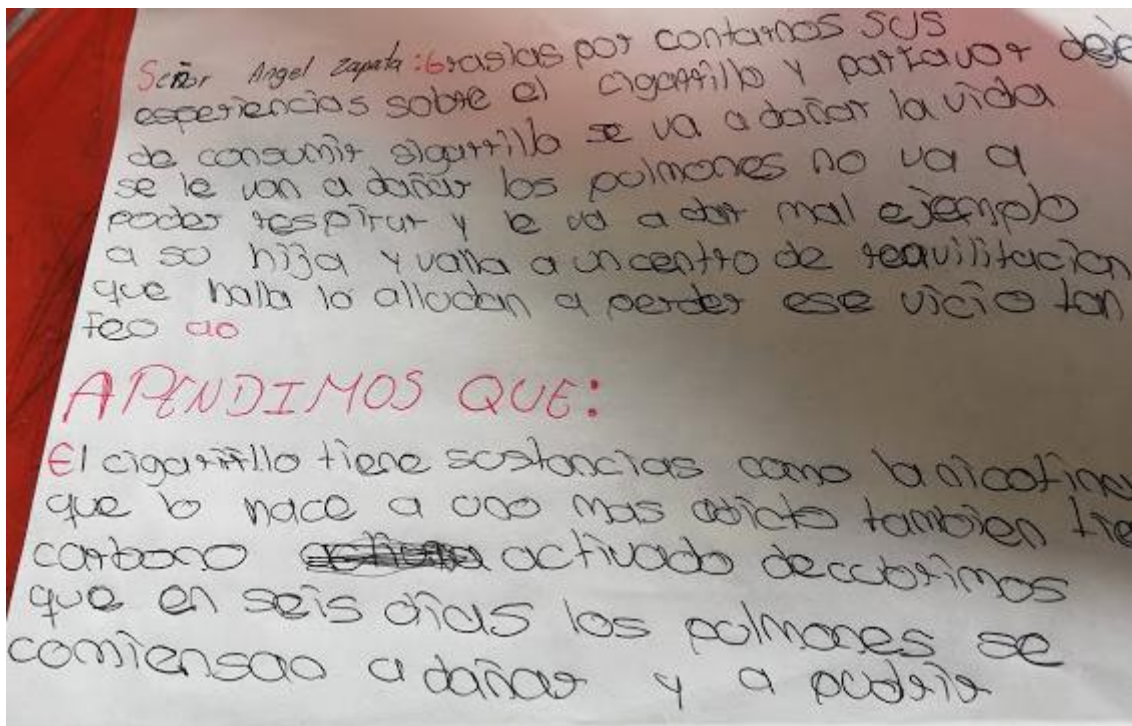 Señor Angel Zapata: Grasias por contarnos SUS
esperiencias sobre el cigarrillo y parfavor deje
de consumir sigarrillo se va a dañar la vida
se le van a dañar los pulmones no va a
poder respirar y le va a dar mal ejemplo
a su hija y valla a un centro de reavilitacion
que halla lo alludan a perder ese vicio tan
feo
APENDIMOS QUE:
El cigarrillo tiene sustancias como la nicotina
que lo hace a uno mas adicto tambien tie
carbono activado deccubrimos
que en seis días los pulmones se
comiensan a dañar y a pudrir